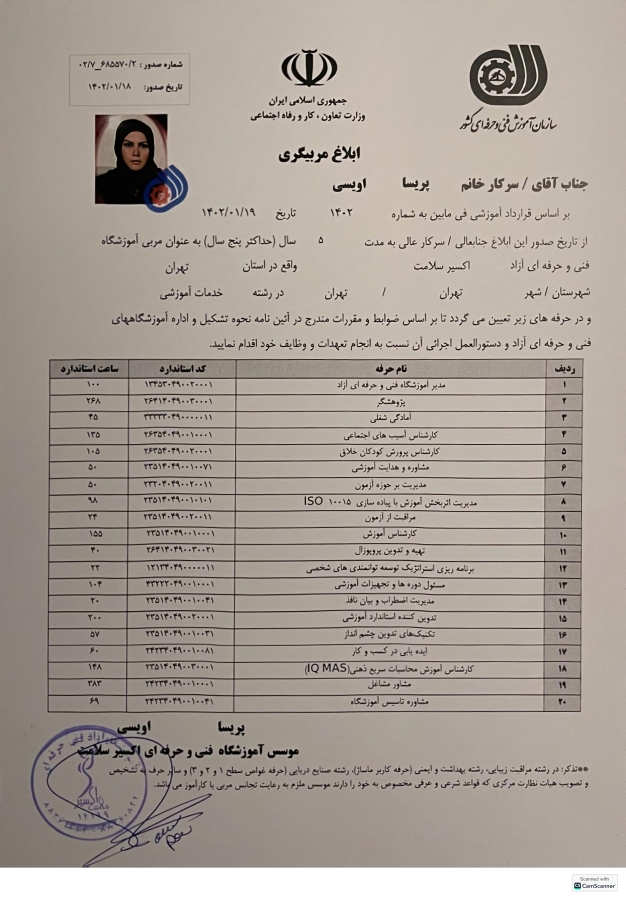 شماره صدور : ۰۲/۷_۶۸۵۵۷۰/۲
تاریخ صدور: ۱۴۰۲/۰۱/۱۸
جمهوری اسلامی ایران
وزارت تعاون ، کار و رفاه اجتماعی
سازمان آموزش فنی و حرفه ای کشور
ابلاغ مربیگری
جناب آقای / سرکار خانم پریسا اویسی
بر اساس قرارداد آموزشی فی مابین به شماره ۱۴۰۲ تاریخ ۱۴۰۲/۰۱/۱۹
از تاریخ صدور این ابلاغ جنابعالی / سرکار عالی به مدت ۵ سال (حداکثر پنج سال) به عنوان مربی آموزشگاه
فنی و حرفه ای آزاد اکسیر سلامت واقع در استان تهران
شهرستان / شهر تهران / تهران در رشته خدمات آموزشی
و در حرفه های زیر تعیین می گردد تا بر اساس ضوابط و مقررات مندرج در آئین نامه نحوه تشکیل و اداره آموزشگاههای
فنی و حرفه ای آزاد و دستورالعمل اجرائی آن نسبت به انجام تعهدات و وظایف خود اقدام نمایید.
ردیف نام حرفه کد استاندارد ساعت استاندارد
۱ مدیر آموزشگاه فنی و حرفه ای آزاد ۱۳۴۵۳۰۴۹۰۰۲۰۰۰۱ ۱۰۰
۲ پژوهشگر ۲۶۴۱۴۰۴۹۰۰۳۰۰۰۱ ۲۶۸
۳ آمادگی شغلی ۳۳۳۳۳۰۴۹۰۰۰۰۰۱۱ ۴۵
۴ کارشناس آسیب های اجتماعی ۲۶۳۵۴۰۴۹۰۰۱۰۰۰۱ ۱۳۵
۵ کارشناس پرورش کودکان خلاق ۲۶۳۵۴۰۴۹۰۰۲۰۰۰۱ ۱۰۵
۶ مشاوره و هدایت آموزشی ۲۳۵۱۴۰۴۹۰۰۱۰۰۷۱ ۵۰
۷ مدیریت بر حوزه آزمون ۲۳۲۰۴۰۴۹۰۰۲۰۰۱۱ ۵۰
۸ مدیریت اثربخش آموزش با پیاده سازی ISO ۱۰۰۱۵ ۲۳۵۱۴۰۴۹۰۰۱۰۱۰۱ ۹۸
۹ مراقبت از آزمون ۲۳۵۱۴۰۴۹۰۰۲۰۰۱۱ ۲۴
۱۰ کارشناس آموزش ۲۳۵۱۴۰۴۹۰۰۱۰۰۰۱ ۱۵۵
۱۱ تهیه و تدوین پروپوزال ۲۶۴۱۴۰۴۹۰۰۳۰۰۲۱ ۴۰
۱۲ برنامه ریزی استراتژیک توسعه توانمندی های شخصی ۱۲۱۳۴۰۴۹۰۰۰۰۰۱۱ ۲۲
۱۳ مسئول دوره ها و تجهیزات آموزشی ۴۳۲۲۲۰۴۹۰۰۱۰۰۰۱ ۱۰۴
۱۴ مدیریت اضطراب و بیان نافذ ۲۳۵۱۴۰۴۹۰۰۱۰۰۴۱ ۲۰
۱۵ تدوین کننده استاندارد آموزشی ۲۳۵۱۴۰۴۹۰۰۲۰۰۰۱ ۲۰۰
۱۶ تکنیک‌های تدوین چشم انداز ۲۳۵۱۴۰۴۹۰۰۱۰۰۳۱ ۵۷
۱۷ ایده یابی در کسب و کار ۲۴۲۳۴۰۴۹۰۰۱۰۰۸۱ ۶۰
۱۸ کارشناس آموزش محاسبات سریع ذهنی(IQ MAS) ۲۳۵۱۴۰۴۹۰۰۳۰۰۰۱ ۱۴۸
۱۹ مشاور مشاغل ۲۴۲۳۴۰۴۹۰۰۱۰۰۰۱ ۳۸۳
۲۰ مشاوره تاسیس آموزشگاه ۲۴۲۳۴۰۴۹۰۰۱۰۰۴۱ ۶۹
پریسا اویسی
موسس آموزشگاه فنی و حرفه ای اکسیر سلامت
**تذکر: در رشته مراقبت زیبایی، رشته بهداشت و ایمنی (حرفه کاربر ماساژ)، رشته صنایع دریایی (حرفه غواص سطح ۱ و ۲ و ۳) و سایر حرف به تشخیص
و تصویب هیات نظارت مرکزی که قواعد شرعی و عرفی مخصوص به خود را دارند موسس ملزم به رعایت تجانس مربی با کارآموز می باشد.
اکسیر
سلامت
Scanned with
CamScanner